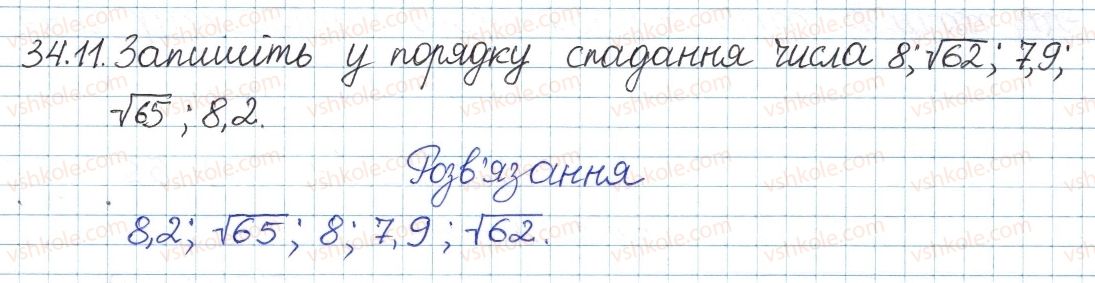 34.11. Запишіть у порядку спадання числа 8; √62; 7,9;
√65; 8,2.
Розв'язання
8,2; √65; 8; 7,9; √62.